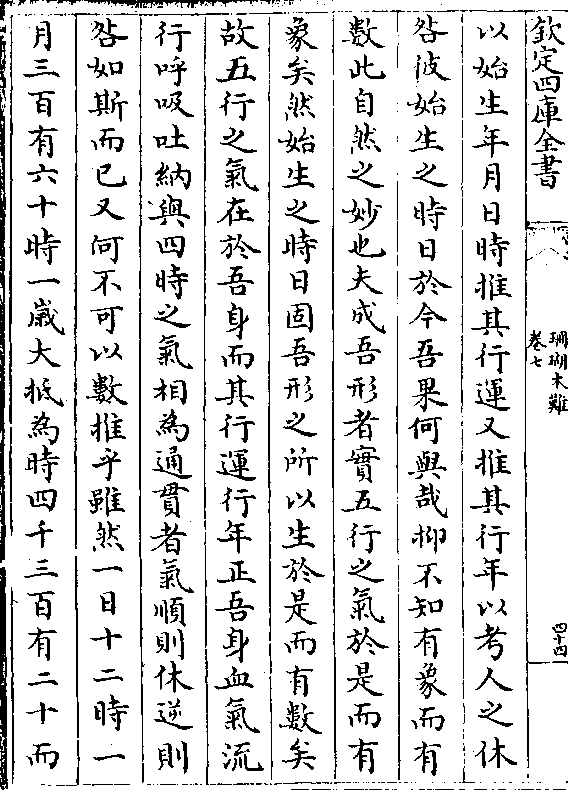 欽定四庫全書
珊瑚木難
卷七
四十四
以始生年月日時推其行運又推其行年以考人之休
咎彼始生之時日於今吾果何與哉抑不知有象而有
數此自然之妙也夫成吾形者實五行之氣於是而有
象矣然始生之時日固吾形之所以生於是而有數矣
故五行之氣在於吾身而其行運行年正吾身血氣流
行呼吸吐納與四時之氣相為通貫者氣順則休逆則
咎如斯而已又何不可以數推乎雖然一日十二時一
月三百有六十時一嵗大抵為時四千三百有二十而